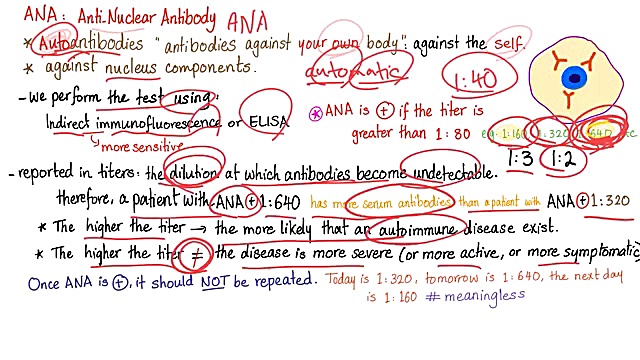 ANA: Anti-Nuclear Antibody ANA
* Autoantibodies "antibodies against your own body": against the self.
* against nucleus components.
automatic
1:40
- we perform the test using:
Indirect immunofluorescence or ELISA
↳ more sensitive
* ANA is + if the titer is
greater than 1:80 eg. 1:160, 1:320, 1:640, etc
1:3 1:2
- reported in titers: the dilution at which antibodies become undetectable.
therefore, a patient with ANA + 1:640 has more serum antibodies than a patient with ANA + 1:320
* The higher the titer → the more likely that an autoimmune disease exist.
* The higher the titer ≠ the disease is more severe (or more active, or more symptomatic)
Once ANA is +, it should NOT be repeated. Today is 1:320, tomorrow is 1:640, the next day
is 1:160 # meaningless